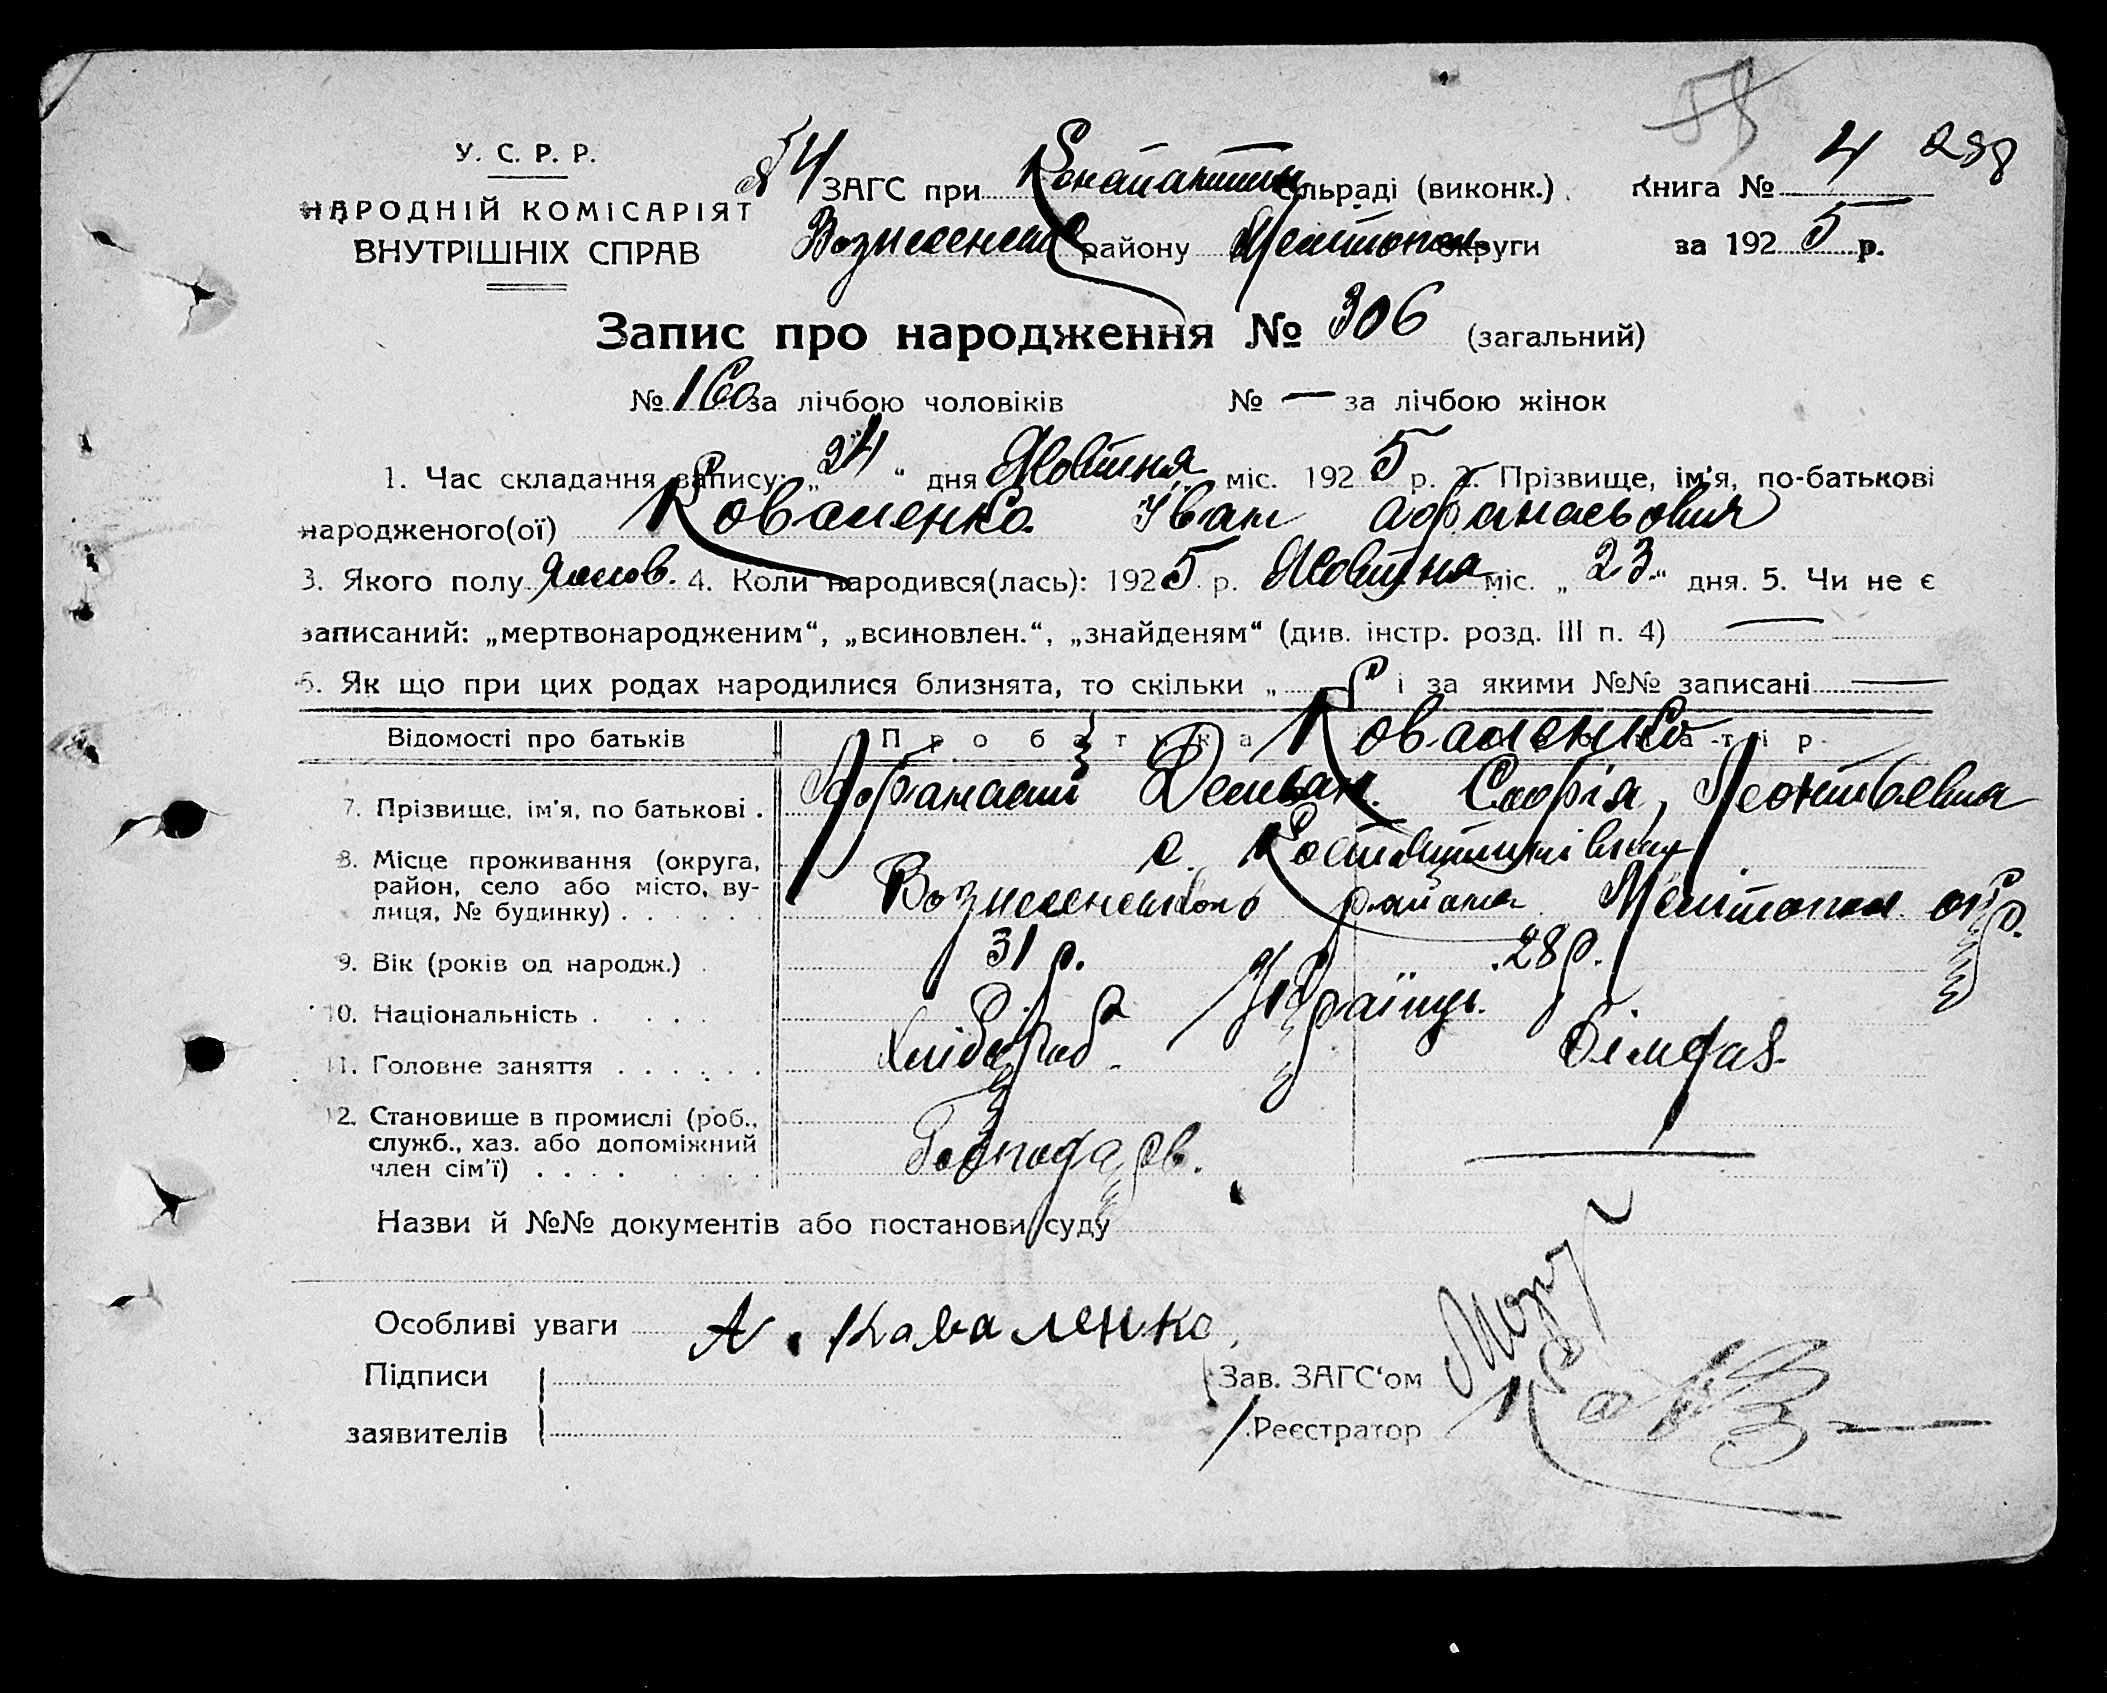 У. С. Р. Р.
НАРОДНІЙ КОМІСАРІЯТ
ВНУТРІШНІХ СПРАВ
54 ЗАГС при сільраді (виконк.) Книга № 4 288
району Мелітопол. округи за 1925 р.
Запис про народження № 306 (загальний)
№ 160 за лічбою чоловіків № — за лічбою жінок
1. Час складання запису: „24“ дня Жовтня міс. 1925 р. 2. Прізвище, ім'я, по-батькові
народженого(ої) Коваленко Іван Афанасьович
3. Якого полу чолов. 4. Коли народився(лась): 1925 р. Жовтня міс. „23“ дня. 5. Чи не є
записаний: „мертвонародженим“, „всиновлен.“, „знайденям“ (див. інстр. розд. III п. 4) —
6. Як що при цих родах народилися близнята, то скільки „ і за якими №№ записані —
Відомості про батьків Про батька Коваленко
7. Прізвище, ім'я, по батькові . Афанасий Демьян. Софія Леонтьевна
8. Місце проживання (округа, с.
район, село або місто, ву- Вознесенського района Мелітопол окр.
лиця, № будинку) . . . . . .
9. Вік (років од народж.) . 31 р. 28 р.
10. Національність . . . . Українц.
11. Головне заняття . . . . . . Хлібороб.
12. Становище в промислі (роб.,
служб., хаз. або допоміжний Господар —
член сім'ї) . . . . . . . .
Назви й №№ документів або постанови суду
Особливі уваги А. Каваленко
Підписи Зав. ЗАГС'ом
заявителів Реєстратор